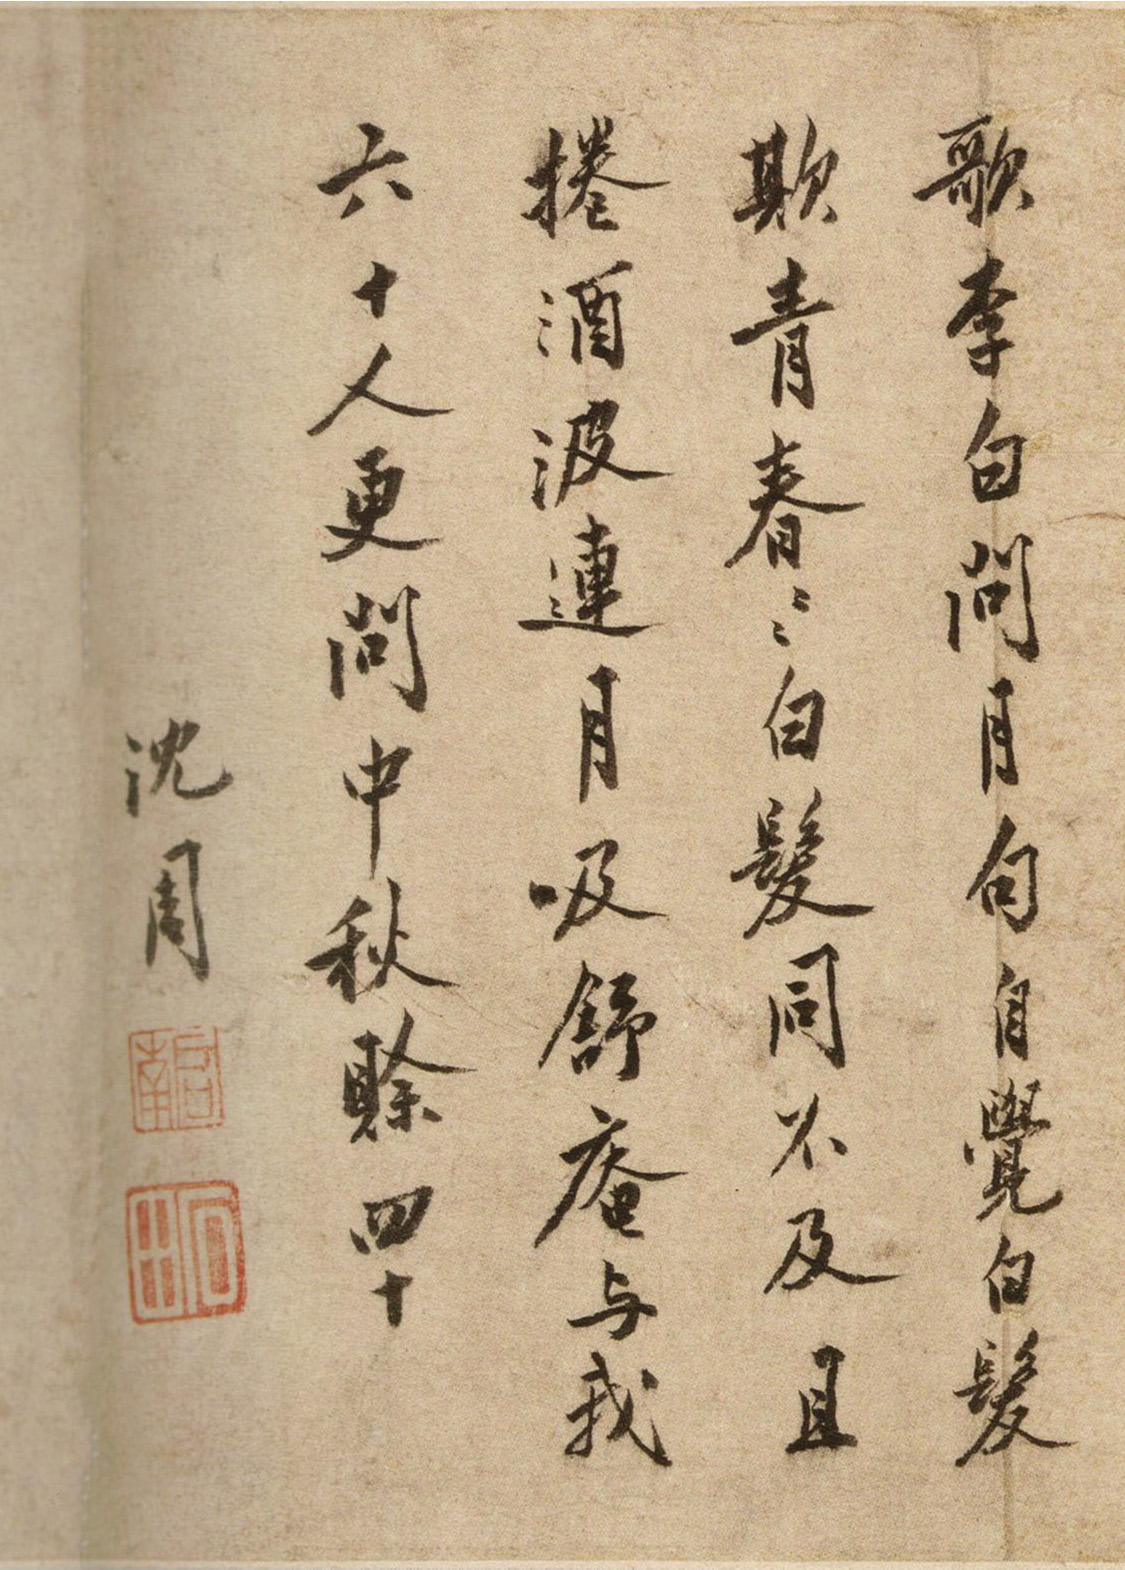 歌李白問月句自覺白髮
欺青春〻白髮同不及且
捲酒波連月吸舒庵与我
六十人更問中秋賖四十
沈周
啟南
石田